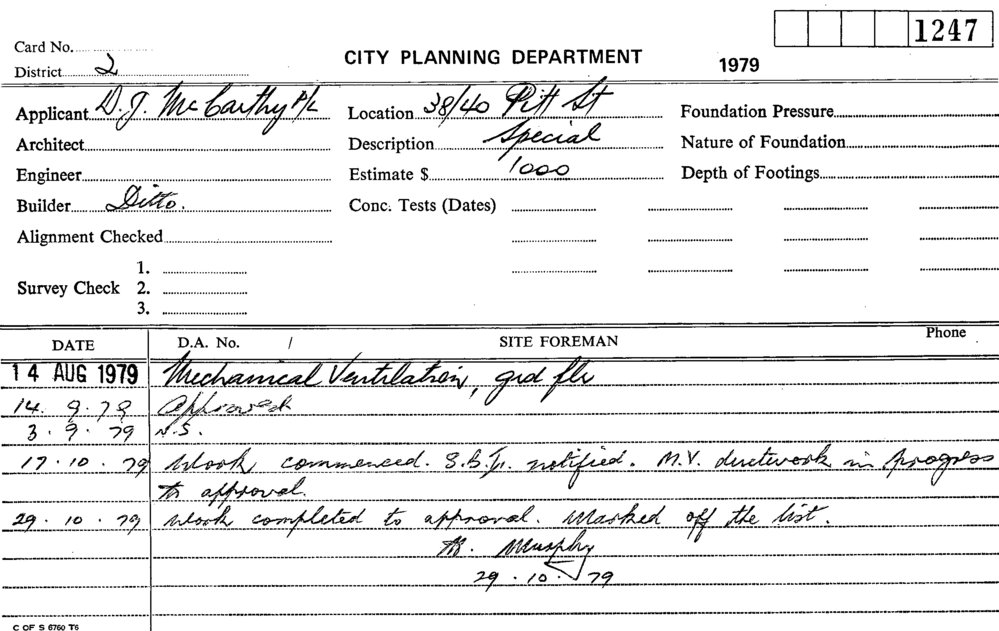 1247
Card No.
CITY PLANNING DEPARTMENT
1979
District 2
Applicant D. J. McCarthy P/L Location 38/40 Pitt St Foundation Pressure
Architect Description Special Nature of Foundation
Engineer Estimate $ 1000 Depth of Footings
Builder Ditto. Conc. Tests (Dates)
Alignment Checked
1.
Survey Check 2.
3.
DATE D.A. No. / SITE FOREMAN Phone
14 AUG 1979 Mechanical Ventilation, grd flr
14. 9. 79 Approved
3. 9. 79 N.S.
17. 10. 79 Work commenced. notified. M.V. ductwork in progress
to approval.
29. 10. 79 Work completed to approval. Marked off the list.
Murphy
29. 10. 79
C OF S 6760 T6